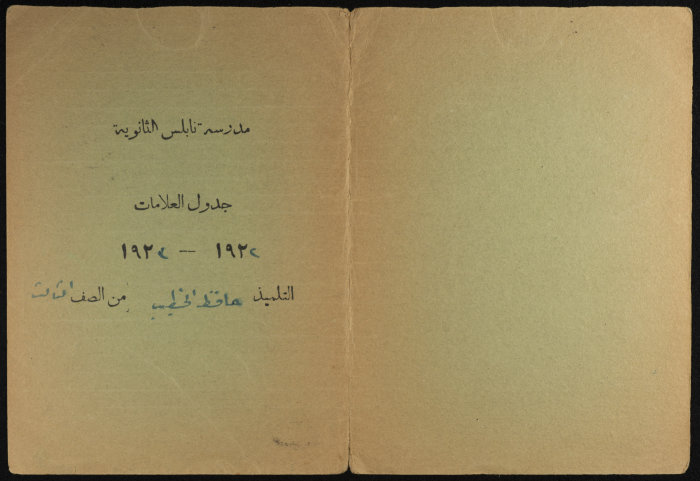 مدرسة نابلس الثانوية
جدول العلامات
١٩٢٢ — ١٩٢٣
التلميذ حافظ الخطيب من الصف الثالث